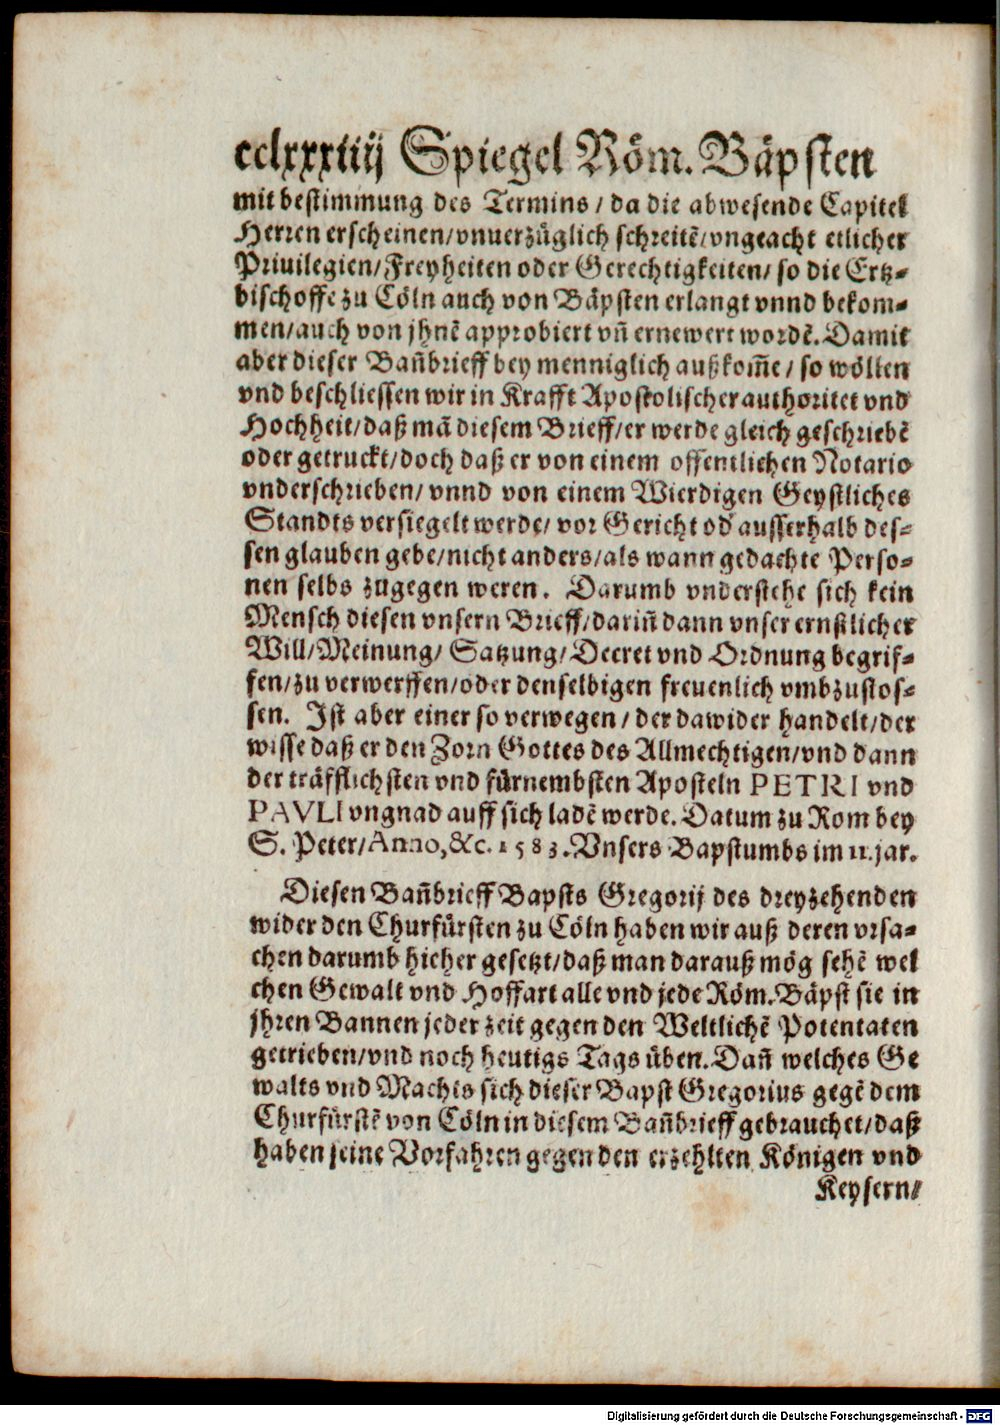 cclxxxiiij Spiegel Röm. Bäpsten
mit bestimmung des Termins / da die abwesende Capitel
Herren erscheinen/vnuerzüglich schreitẽ/vngeacht etlicher
Priuilegien/Freyheiten oder Gerechtigkeiten/ so die Ertz-
bischoffe zu Cöln auch von Bäpsten erlangt vnnd bekom-
men/auch von jhnẽ approbiert vñ ernewert wordẽ. Damit
aber dieser Bañbrieff bey menniglich außkom̃e / so wöllen
vnd beschliessen wir in Krafft Apostolischer authoritet vnd
Hochheit/daß mã diesem Brieff/er werde gleich geschriebẽ
oder getruckt/doch daß er von einem offentlichen Notario
vnderschrieben/ vnnd von einem Wierdigen Geystliches
Standts versiegelt werde/ vor Gericht od' ausserhalb des-
sen glauben gebe/nicht anders/als wann gedachte Perso-
nen selbs zugegen weren. Darumb vnderstehe sich kein
Mensch diesen vnsern Brieff/dariñ dann vnser ernstlicher
Will/Meinung/ Satzung/Decret vnd Ordnung begrif-
fen/zu verwerffen/oder denselbigen freuenlich vmbzustos-
sen. Ist aber einer so verwegen / der dawider handelt/der
wisse daß er den Zorn Gottes des Allmechtigen/vnd dann
der träfflichsten vnd fürnembsten Aposteln PETRI vnd
PAVLI vngnad auff sich ladẽ werde. Datum zu Rom bey
S. Peter/Anno,&c. 1583. Vnsers Bapstumbs im 11. jar.
Diesen Bañbrieff Bapsts Gregorij des dreyzehenden
wider den Churfürsten zu Cöln haben wir auß deren vrsa-
chen darumb hieher gesetzt/daß man darauß mög sehẽ wel
chen Gewalt vnd Hoffart alle vnd jede Röm. Bäpst sie in
jhren Bannen jeder zeit gegen den Weltlichẽ Potentaten
getrieben/vnd noch heutigs Tags üben. Dañ welches Ge
walts vnd Machts sich dieser Bapst Gregorius gegẽ dem
Churfürstẽ von Cöln in diesem Bañbrieff gebrauchet/daß
haben seine Vorfahren gegen den erzehlten Königen vnd
Keysern/
Digitalisierung gefördert durch die Deutsche Forschungsgemeinschaft - DFG